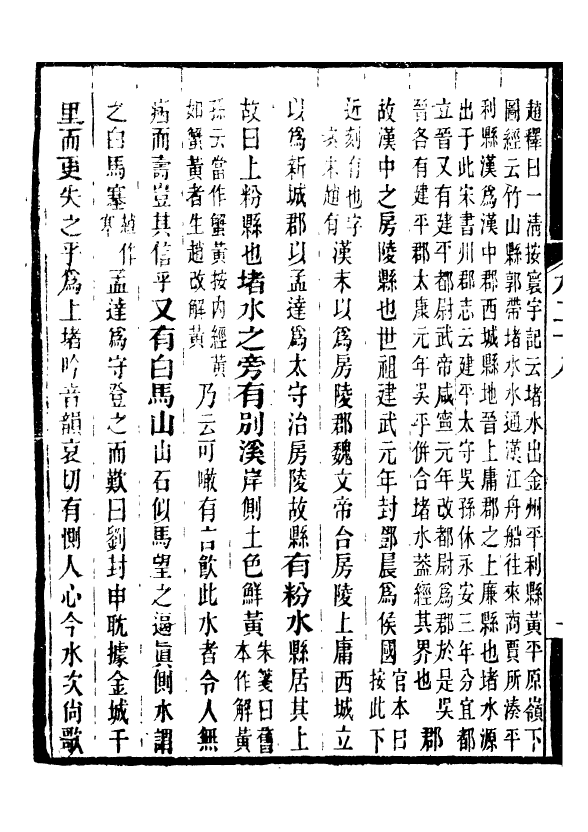 趙釋曰一清按寰宇記云堵水出金州平利縣黃平原嶺下
圖經云竹山縣郭帶堵水水通漢江舟船往來商賈所湊平
利縣漢爲漢中郡西城縣地晉上庸郡之上廉縣也堵水源
出于此宋書州郡志云建平太守吳孫休永安三年分宜都
立晉又有建平都尉武帝咸寧元年改都尉爲郡於是吳
晉各有建平郡太康元年吳平併合堵水葢經其界也
郡
故漢中之房陵縣也世祖建武元年封鄧晨爲侯國官本曰
按此下
近刻有也字
朱趙有
漢末以爲房陵郡魏文帝合房陵上庸西城立
以爲新城郡以孟達爲太守治房陵故縣有粉水縣居其上
故曰上粉縣也堵水之旁有別溪岸側土色鮮黃朱箋曰舊
本作解黃
孫云當作蟹黃按內經黃
如蟹黃者生趙改解黃
乃云可噉有言飲此水者令人無
病而壽豈其信乎又有白馬山山石似馬望之逼眞側水謂
之白馬塞趙作
寒
孟達爲守登之而歎曰劉封申耽據金城千
里而更失之乎爲上堵吟音韻哀切有惻人心今水次尙歌